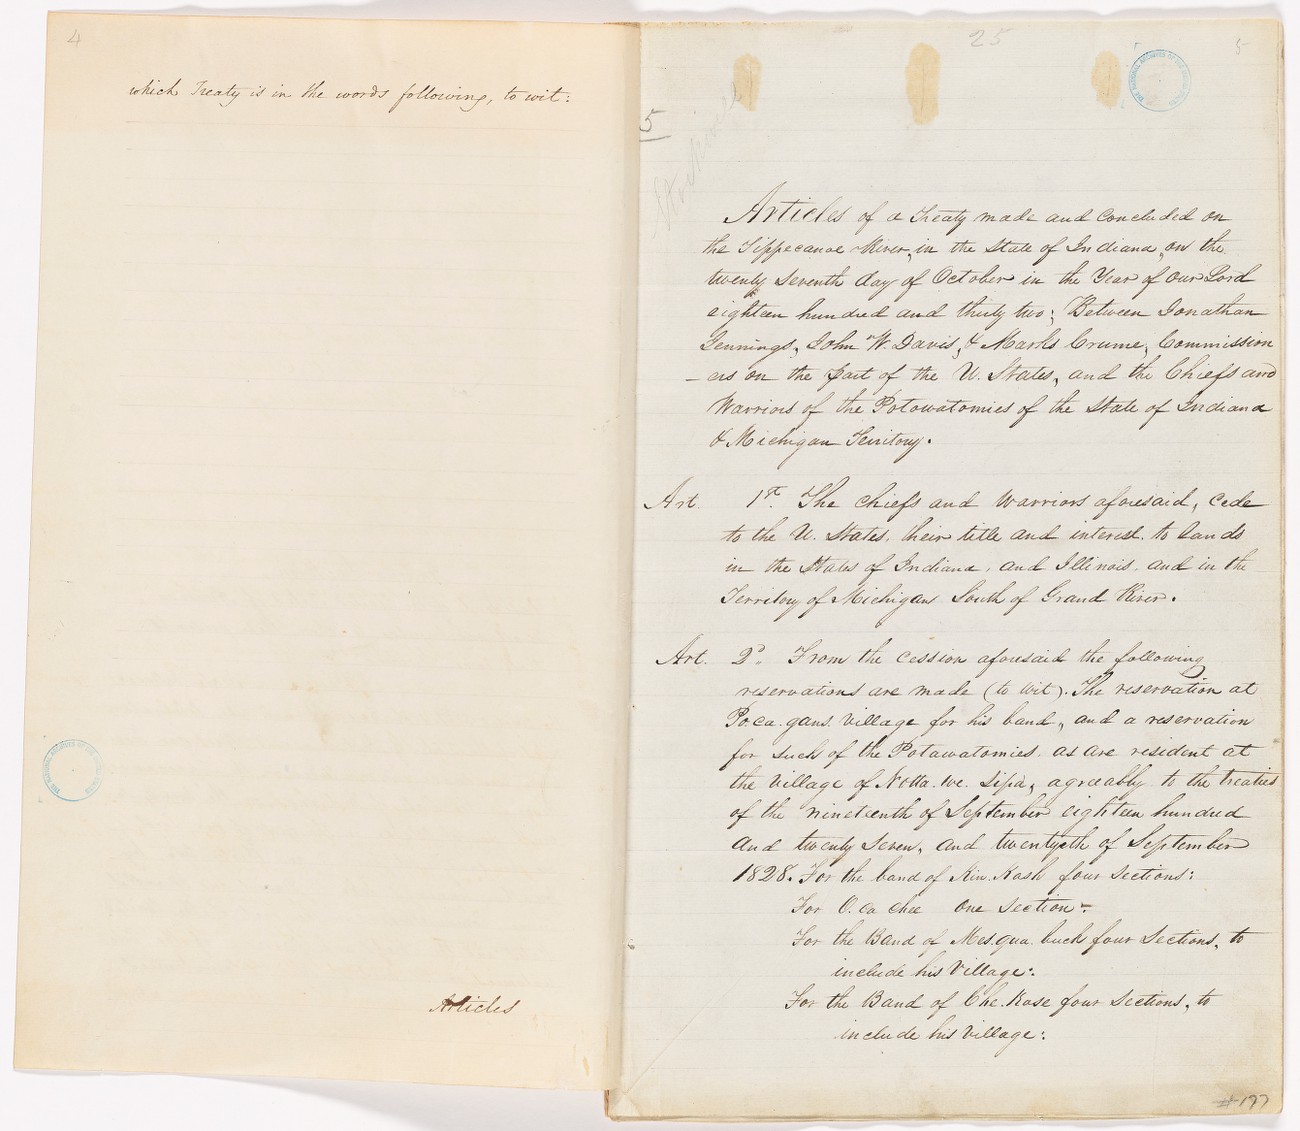 4
which Treaty is in the words following, to wit:
Articles
25
5
5
THE NATIONAL ARCHIVES OF THE UNITED STATES
Articles of a Treaty made and concluded on
the Tippecanoe River, in the State of Indiana, on the
twenty seventh day of October in the Year of our Lord
eighteen hundred and thirty two; Between Jonathan
Jennings, John W. Davis, & Marks Crume, Commission
-ers on the part of the U. States, and the Chiefs and
Warriors of the Potowatomies of the State of Indiana
& Michigan Territory.
Art. 1st. The chiefs and warriors aforesaid, cede
to the U. States, their title and interest to lands
in the States of Indiana, and Illinois, and in the
Territory of Michigan South of Grand River.
Art. 2d. From the cession aforesaid the following
reservations are made (to wit). The reservation at
Po.ca.gans Village for his band, and a reservation
for such of the Potawatomies as are resident at
the village of Notta.we.sipa, agreeably to the treaties
of the nineteenth of September eighteen hundred
and twenty seven, and twentyeth of September
1828. For the band of Kin.Kash four sections:
For O.ca chee one section:
For the Band of Mes.qua.buck four Sections, to
include his Village:
For the Band of Che.Kose four sections, to
include his Village:
# 197